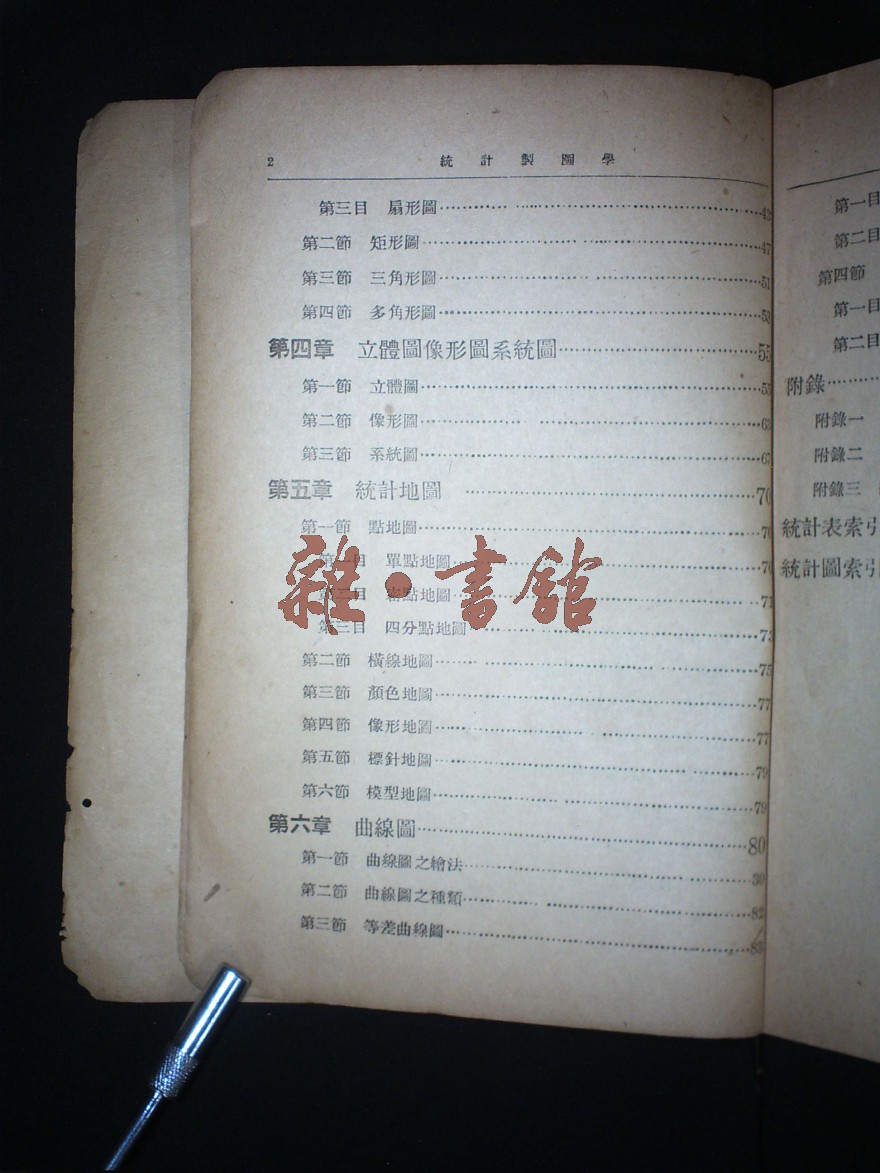 2 統計製圖學
第三目 扇形圖
第二節 矩形圖 47
第三節 三角形圖 51
第四節 多角形圖
第四章 立體圖像形圖系統圖 55
第一節 立體圖 55
第二節 像形圖 63
第三節 系統圖 67
第五章 統計地圖 70
第一節 點地圖 70
第一目 單點地圖 70
第二目 密點地圖 71
第三目 四分點地圖 73
第二節 橫線地圖 75
第三節 顏色地圖 77
第四節 像形地圖 77
第五節 標針地圖 79
第六節 模型地圖 79
第六章 曲線圖 80
第一節 曲線圖之繪法
第二節 曲線圖之種類 82
第三節 等差曲線圖 83
雜·書館
第一目
第二目
第四節
第一目
第二目
附錄
附錄一
附錄二
附錄三
統計表索引
統計圖索引